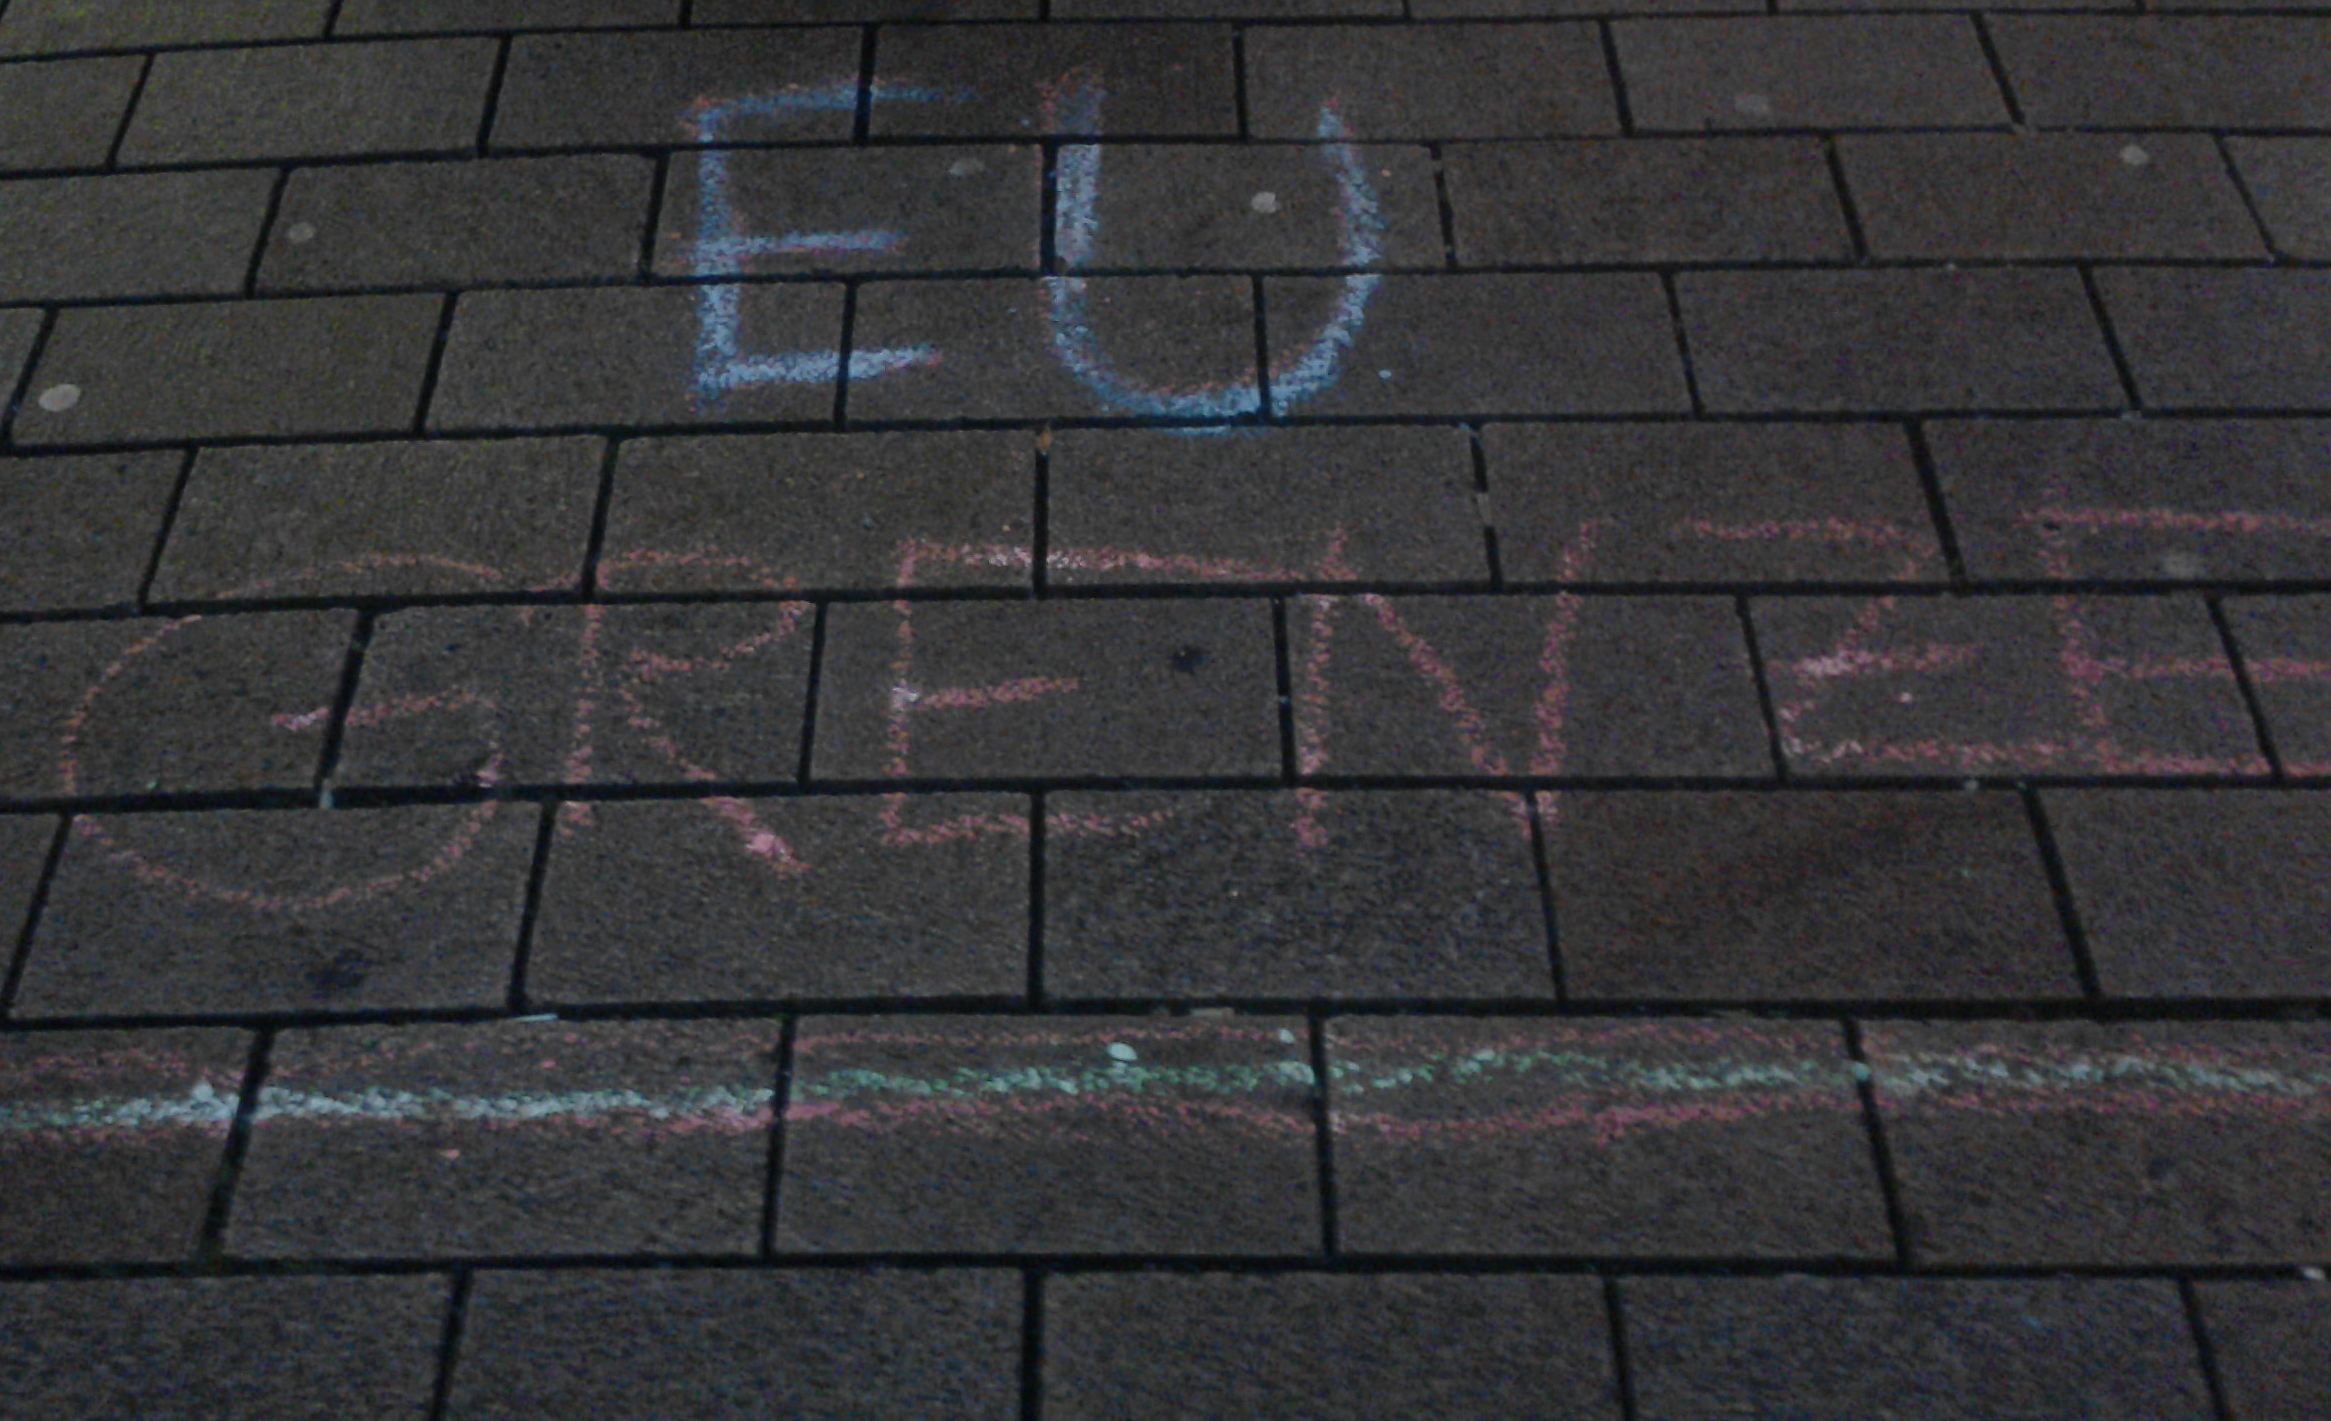 EU
GRENZE